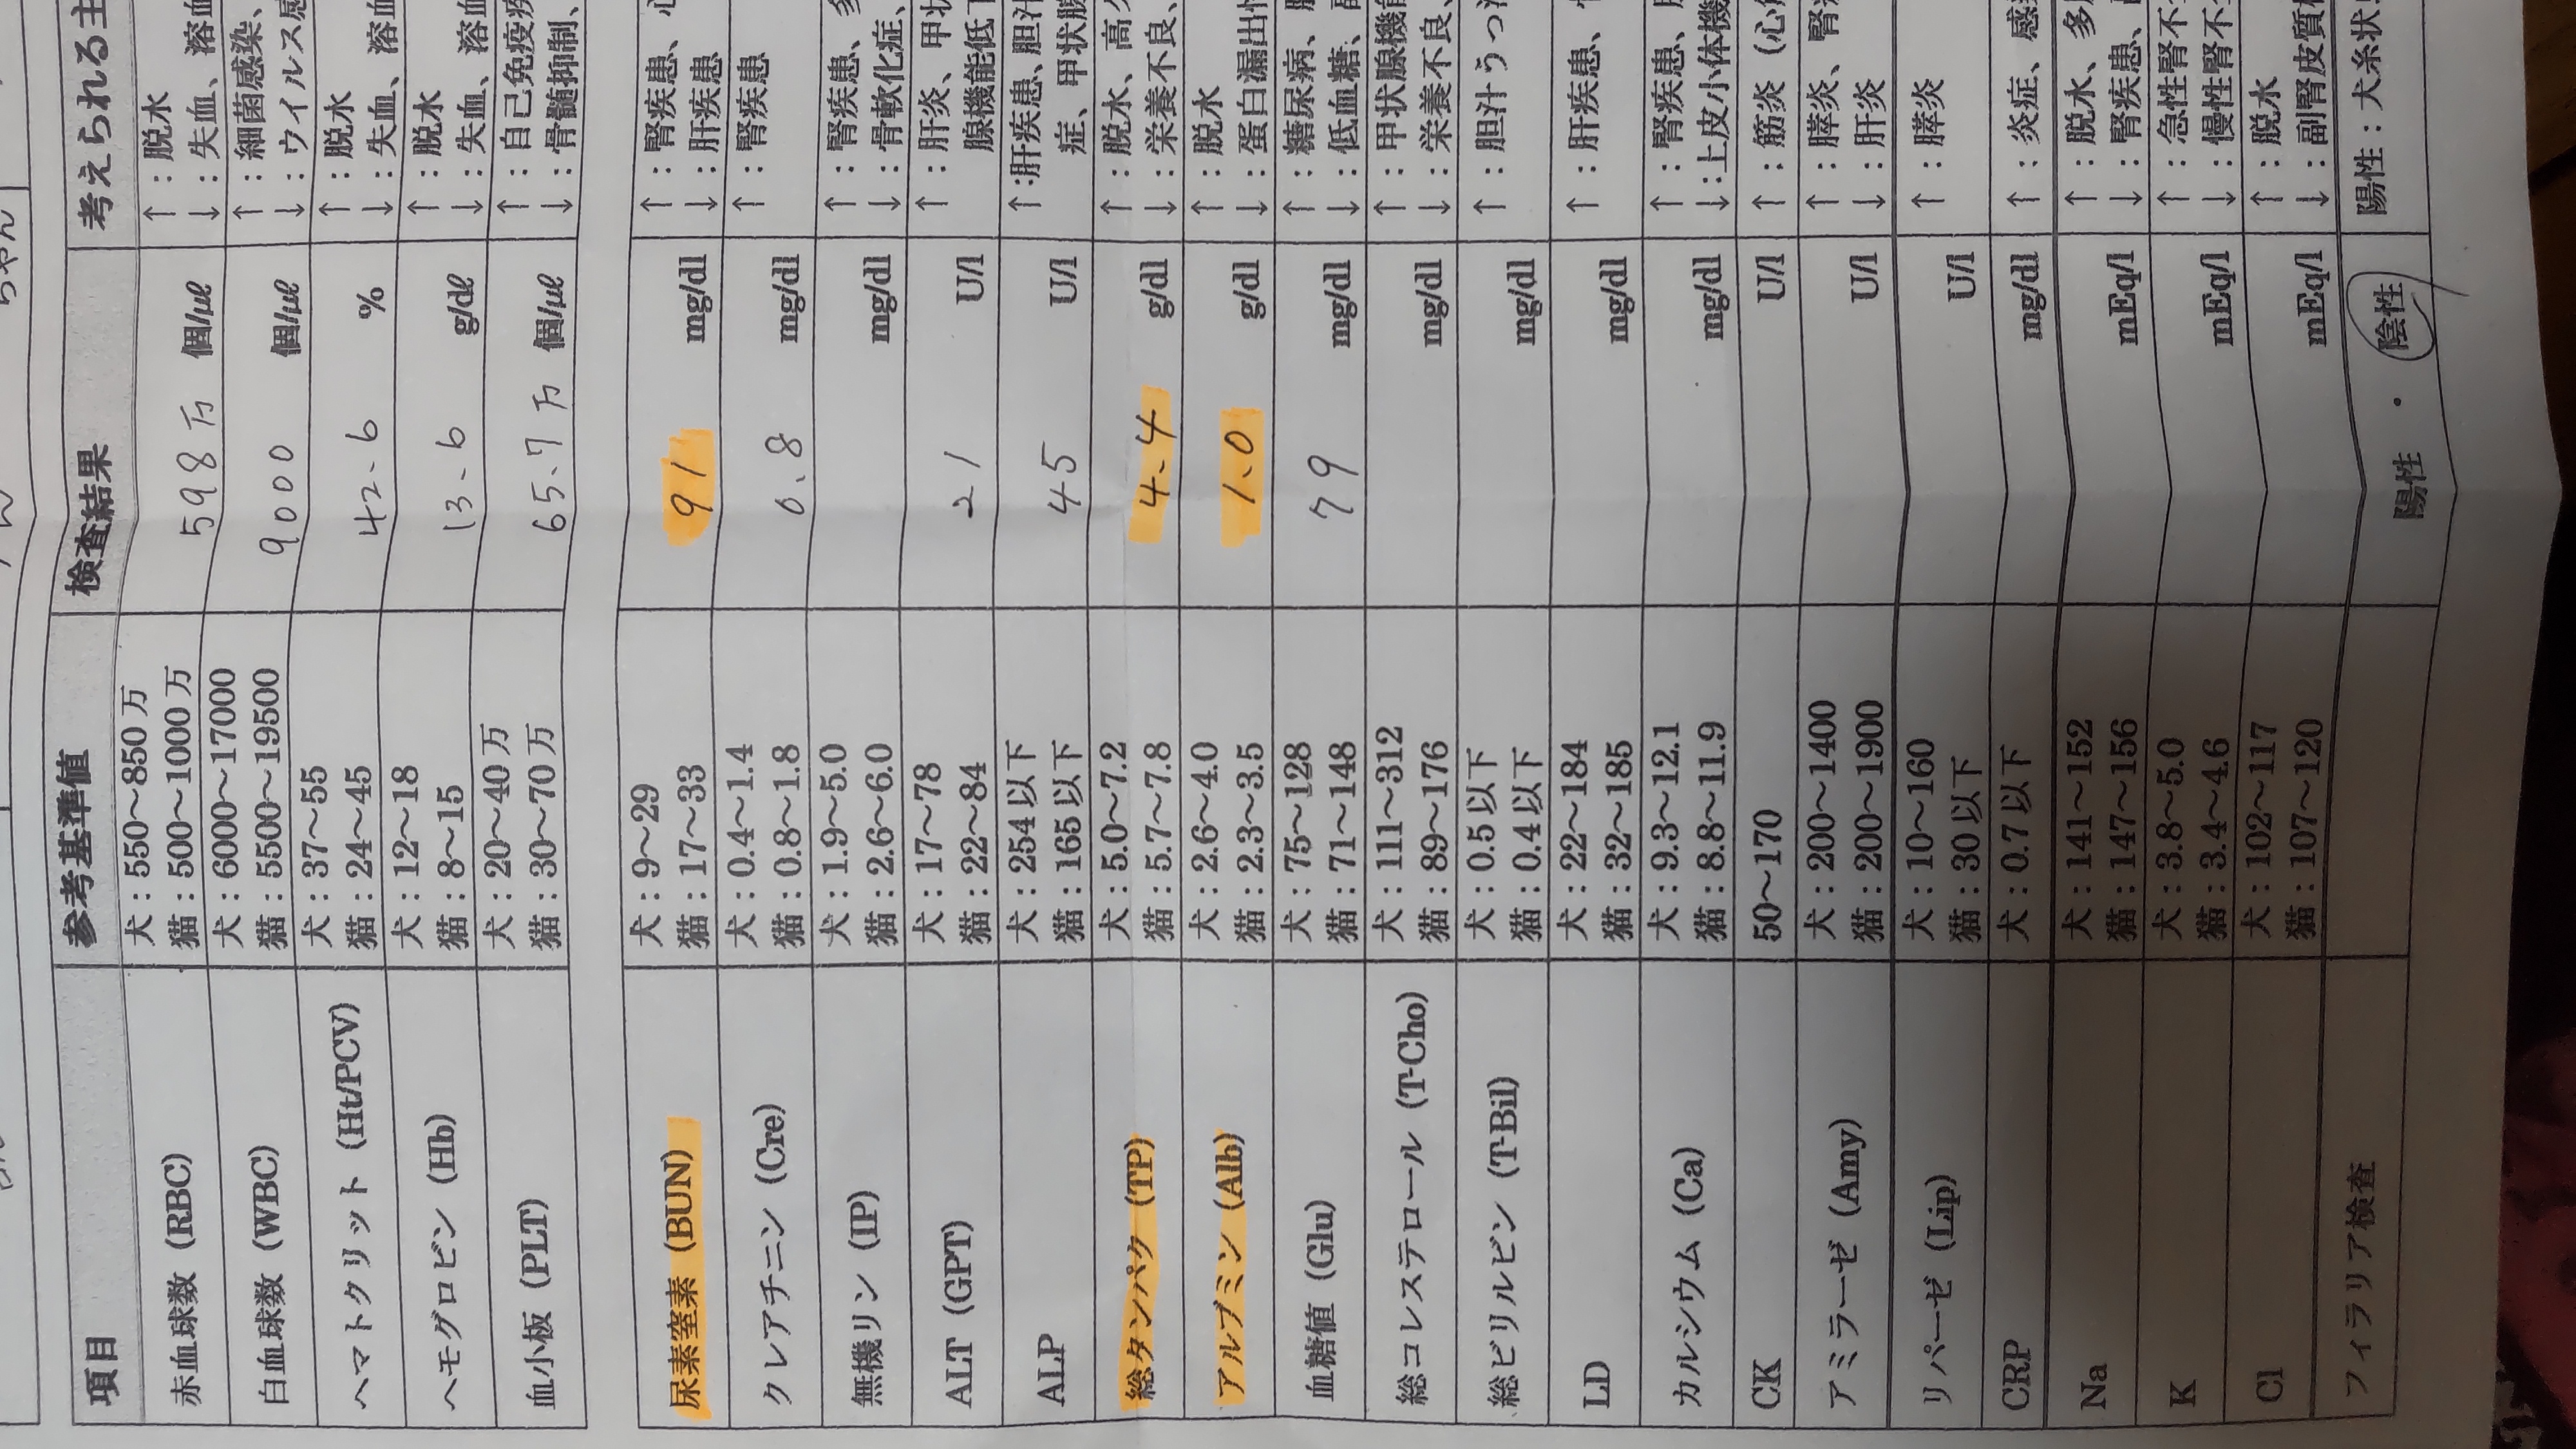 項目 参考基準値 検査結果 考えられる主
赤血球数 (RBC) 犬：550～850万 598万 個/μl ↑：脱水
猫：500～1000万 ↓：失血、溶血
白血球数 (WBC) 犬：6000～17000 9000 個/μl ↑：細菌感染、
猫：5500～19500 ↓：ウイルス感
ヘマトクリット (Ht/PCV) 犬：37～55 42.6 % ↑：脱水
猫：24～45 ↓：失血、溶血
ヘモグロビン (Hb) 犬：12～18 13.6 g/dl ↑：脱水
猫：8～15 ↓：失血、溶血
血小板 (PLT) 犬：20～40万 65.7万 個/μl ↑：自己免疫疾
猫：30～70万 ↓：骨髄抑制、
尿素窒素 (BUN) 犬：9～29 91 mg/dl ↑：腎疾患、心
猫：17～33 ↓：肝疾患
クレアチニン (Cre) 犬：0.4～1.4 0.8 mg/dl ↑：腎疾患
猫：0.8～1.8
無機リン (IP) 犬：1.9～5.0 mg/dl ↑：腎疾患、多
猫：2.6～6.0 ↓：骨軟化症、
ALT (GPT) 犬：17～78 21 U/l ↑：肝炎、甲状
猫：22～84 腺機能低下
ALP 犬：254以下 45 U/l ↑：肝疾患、胆汁
猫：165以下 症、甲状腺
総タンパク (TP) 犬：5.0～7.2 4.4 g/dl ↑：脱水、高
猫：5.7～7.8 ↓：栄養不良、
アルブミン (Alb) 犬：2.6～4.0 1.0 g/dl ↑：脱水
猫：2.3～3.5 ↓：蛋白漏出
血糖値 (Glu) 犬：75～128 79 mg/dl ↑：糖尿病、
猫：71～148 ↓：低血糖、
総コレステロール (T-Cho) 犬：111～312 mg/dl ↑：甲状腺機能
猫：89～176 ↓：栄養不良、
総ビリルビン (T-Bil) 犬：0.5以下 mg/dl ↑：胆汁うっ
猫：0.4以下
LD 犬：22～184 mg/dl ↑：肝疾患、
猫：32～185
カルシウム (Ca) 犬：9.3～12.1 mg/dl ↑：腎疾患、
猫：8.8～11.9 ↓：上皮小体機
CK 50～170 U/l ↑：筋炎（心
アミラーゼ (Amy) 犬：200～1400 U/l ↑：膵炎、腎
猫：200～1900 ↓：肝炎
リパーゼ (Lip) 犬：10～160 U/l ↑：膵炎
猫：30以下
CRP 犬：0.7以下 mg/dl ↑：炎症、感
Na 犬：141～152 mEq/l ↑：脱水、多
猫：147～156 ↓：腎疾患、
K 犬：3.8～5.0 mEq/l ↑：急性腎不
猫：3.4～4.6 ↓：慢性腎不
Cl 犬：102～117 mEq/l ↑：脱水
猫：107～120 ↓：副腎皮質
フィラリア検査 陽性 ・ 陰性 陽性：犬糸状